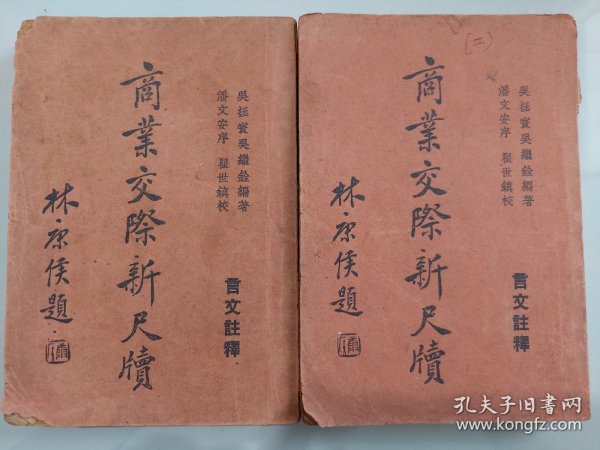 吳拯寰吳繼銓編著
潘文安序 瞿世鎮校
商業交際新尺牘
言文註釋
林康侯題
(二)
吳拯寰吳繼銓編著
潘文安序 瞿世鎮校
商業交際新尺牘
言文註釋
林康侯題
孔夫子旧书网
www.kongfz.com